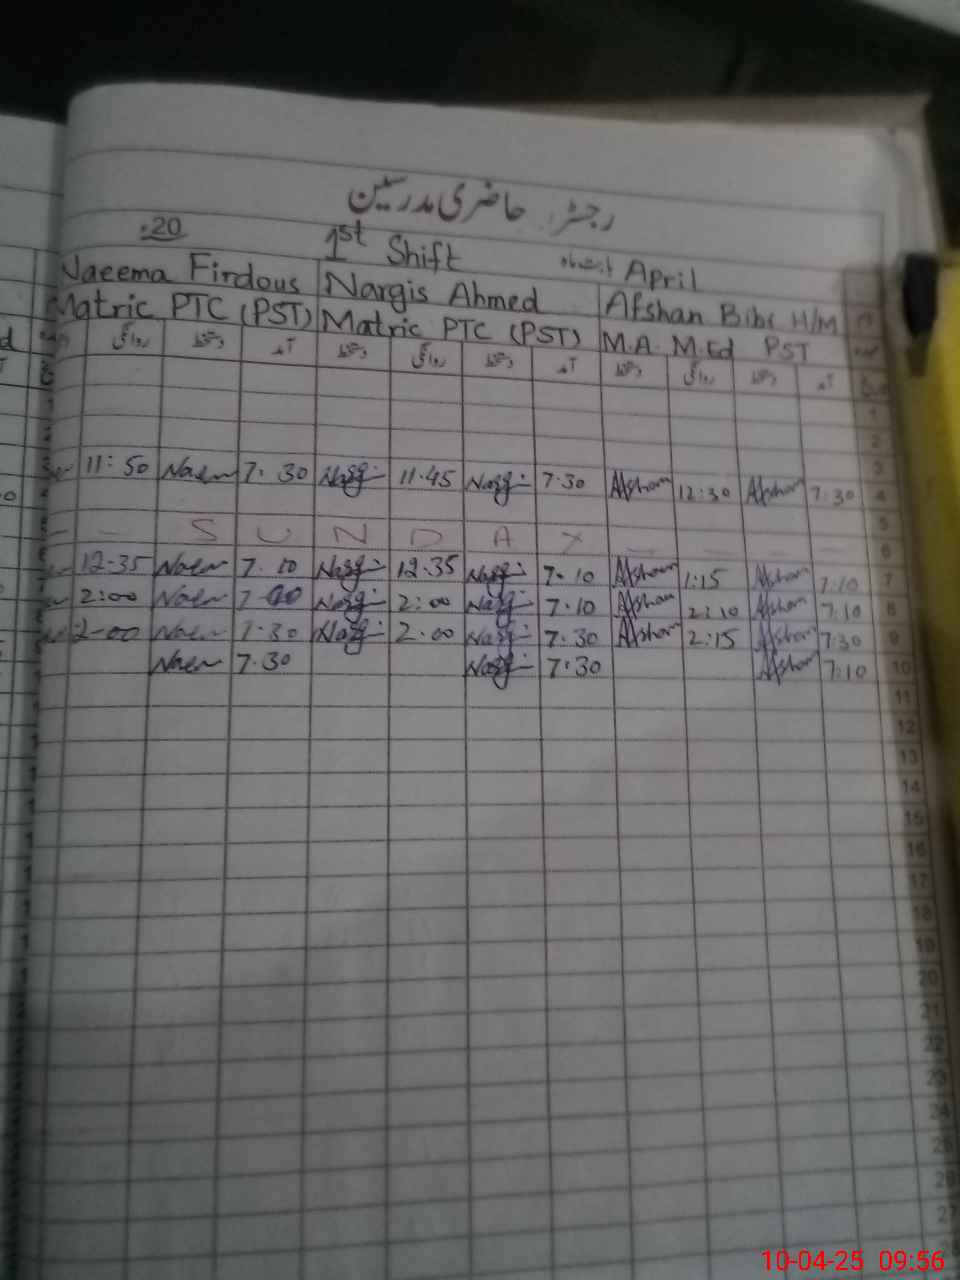 رجسٹر حاضری مدرسین
20
1st Shift April
Naeema Firdous Nargis Ahmed Afshan Bibi H/M
Matric PTC (PST) Matric PTC (PST) M.A. M.Ed PST
روانگی دستخط آمد دستخط روانگی دستخط آمد دستخط روانگی دستخط آمد
1
2
3
11:50 Naem 7:30 Nargi 11.45 Nargi 7.30 Afshan 12:30 Afshan 7:30 4
5
S U N D A Y 6
12-35 Naem 7.10 Nargi 12.35 Nargi 7.10 Afshan 1:15 Afshan 7:10 7
2:00 Naem Nargi 2:00 Nargi 7.10 Afshan 2:10 Afshan 7:10 8
2-00 Naem 7.30 Nargi 2:00 Nargi 7.30 Afshan 2:15 Afshan 7:30 9
Naem 7.30 Nargi 7:30 Afshan 7:10 10
11
12
13
14
15
16
17
18
19
20
21
22
23
24
25
26
27
10-04-25 09:56